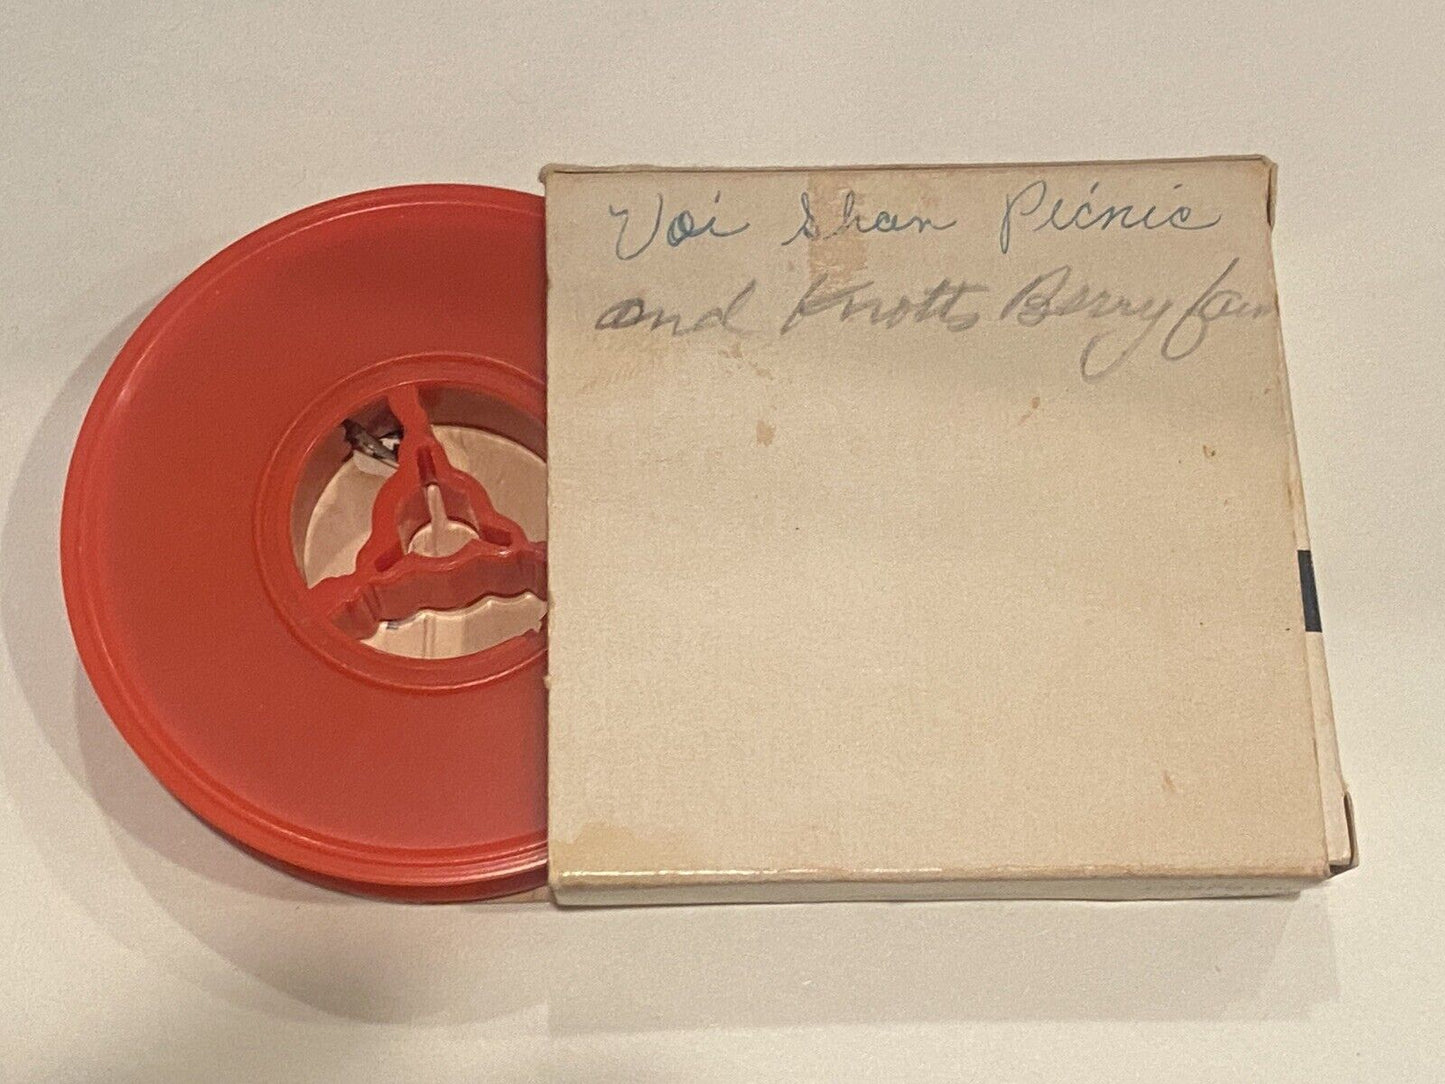 Voi Shan Picnic
and Knotts Berry farm